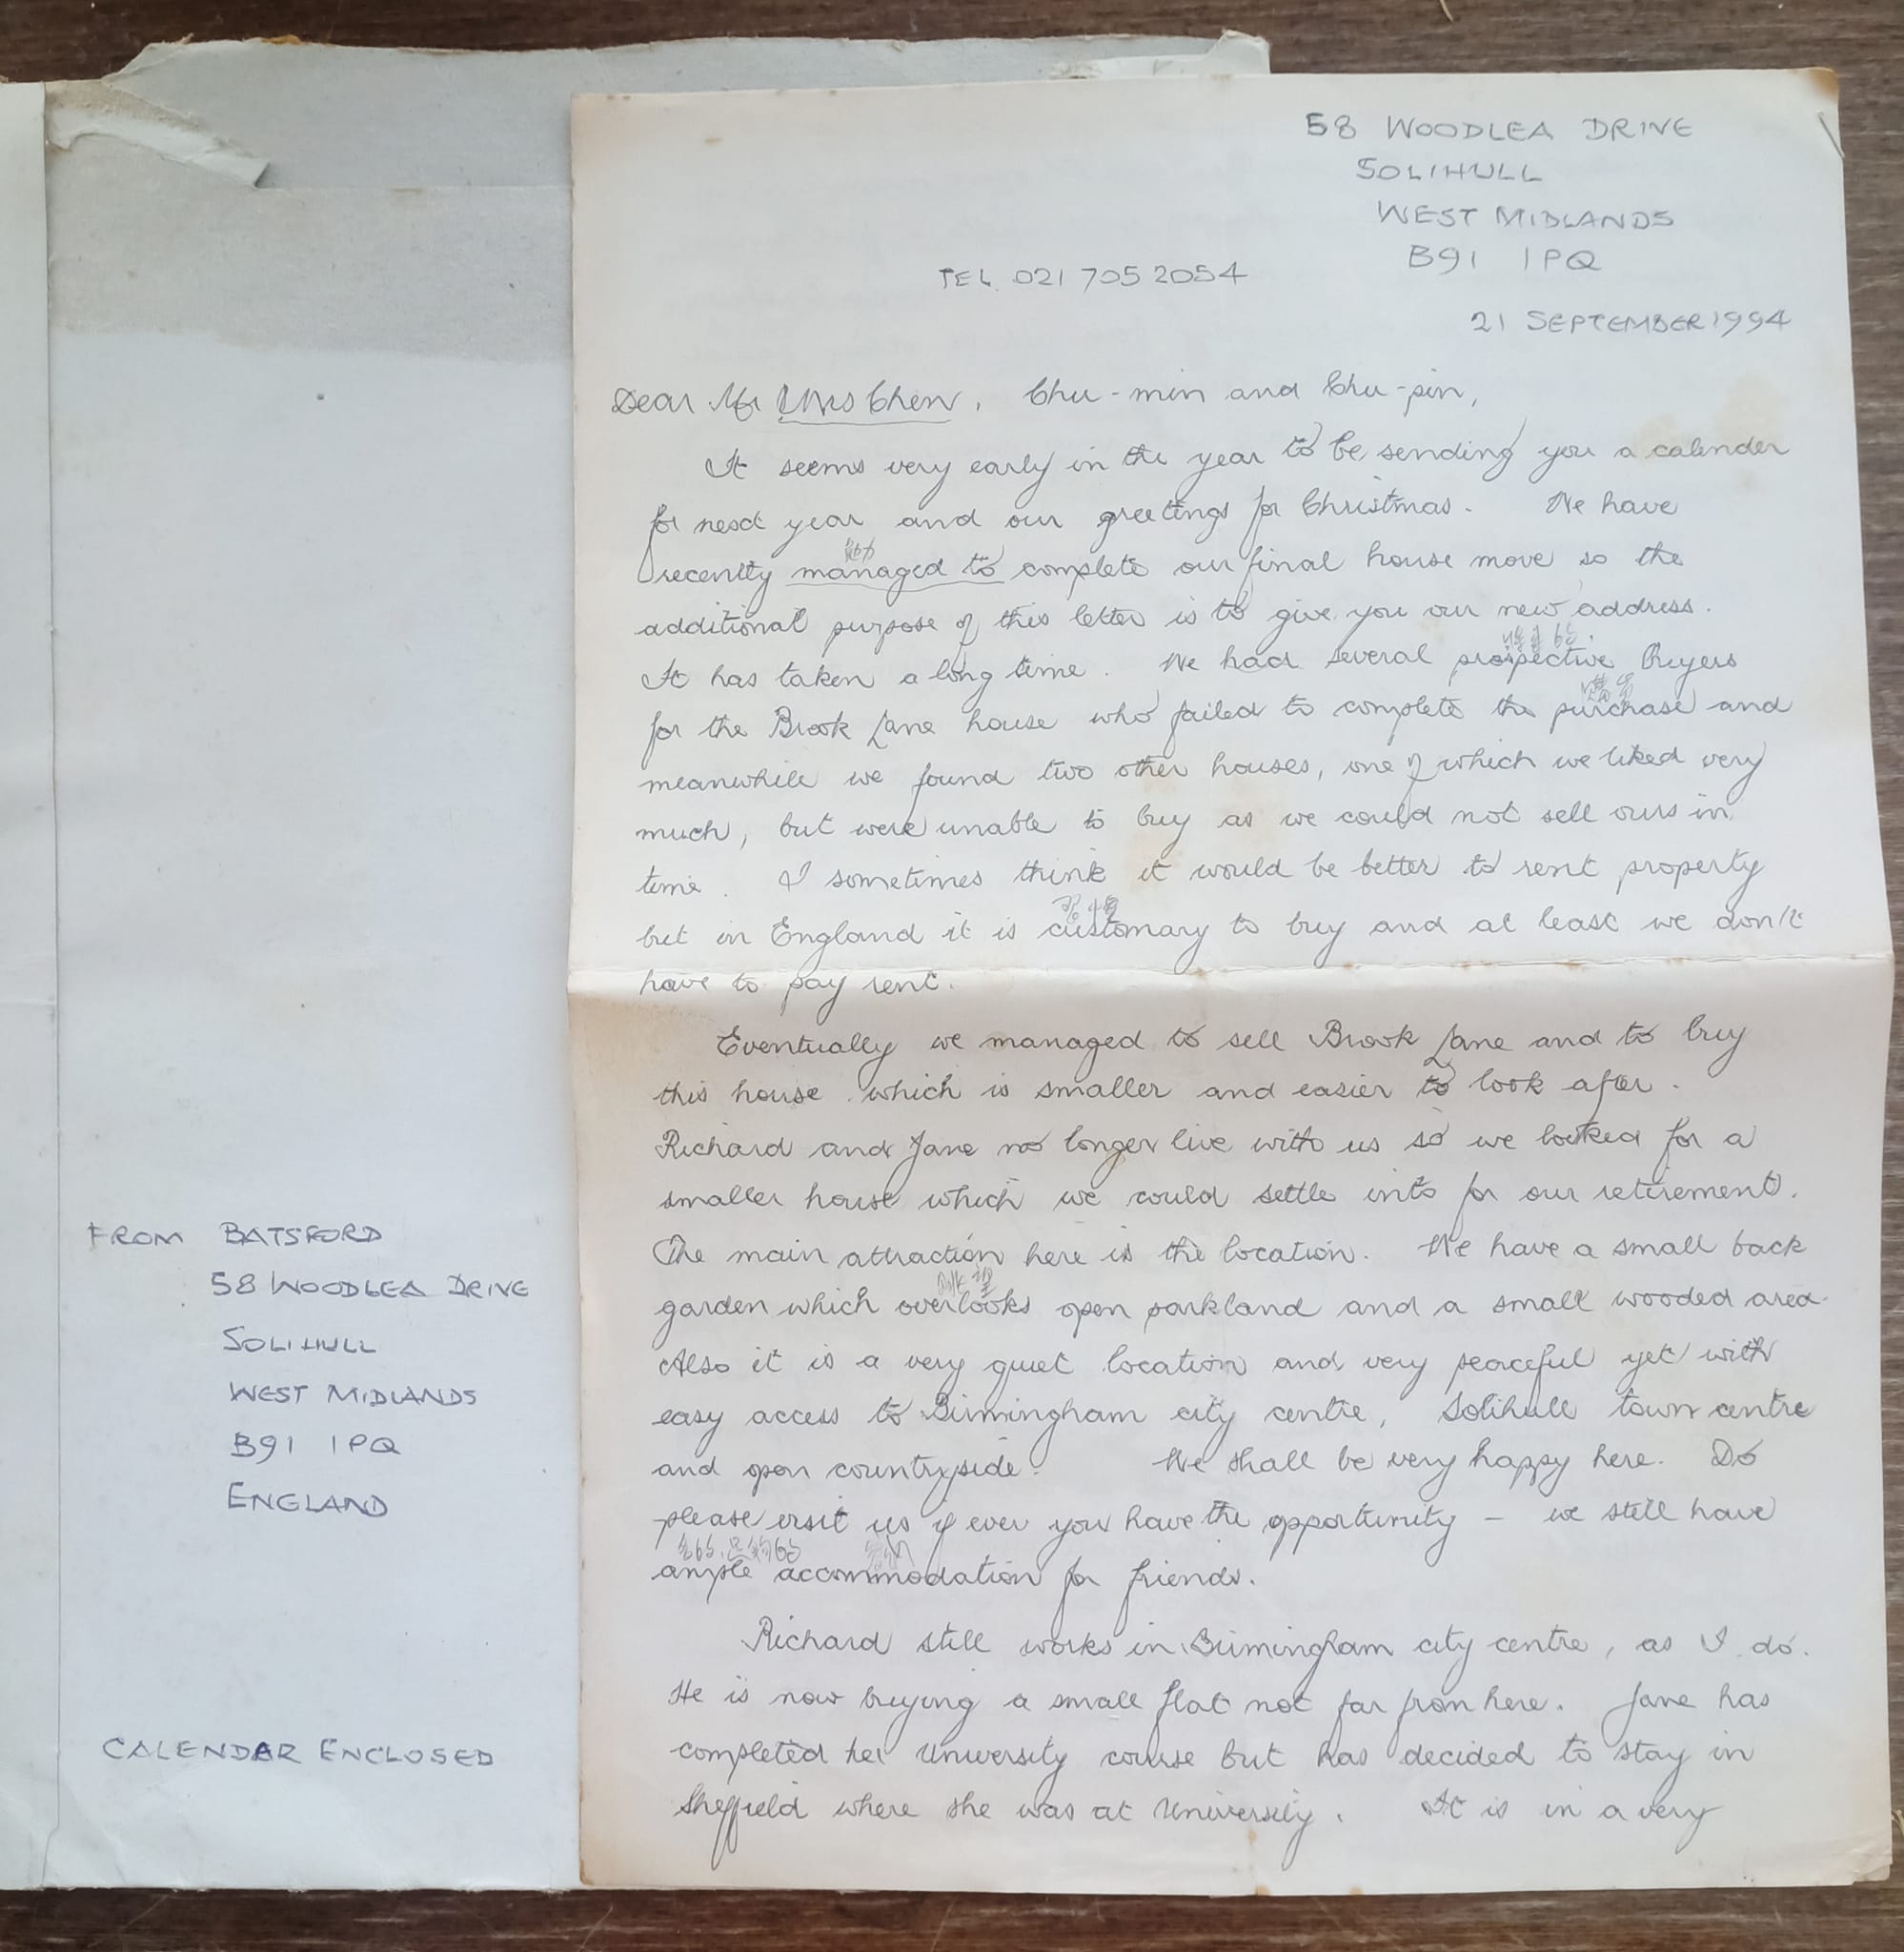 58 WOODLEA DRIVE
SOLIHULL
WEST MIDLANDS
B91 1PQ
TEL. 021 705 2054
21 SEPTEMBER 1994
Dear Mr & Mrs Chen, Chu-min and Chu-pin,
It seems very early in the year to be sending you a calender
for next year and our greetings for Christmas. We have
recently managed to complete our final house move so the
additional purpose of this letter is to give you our new address.
It has taken a long time. We had several prospective buyers
for the Brook Lane house who failed to complete the purchase and
meanwhile we found two other houses, one of which we liked very
much, but were unable to buy as we could not sell ours in
time. I sometimes think it would be better to rent property
習慣
but in England it is customary to buy and at least we don't
have to pay rent.
Eventually we managed to sell Brook Lane and to buy
this house which is smaller and easier to look after.
Richard and Jane no longer live with us so we looked for a
smaller house which we could settle into for our retirement.
The main attraction here is the location. We have a small back
眺望
garden which overlooks open parkland and a small wooded area.
Also it is a very quiet location and very peaceful yet with
easy access to Birmingham city centre, Solihull town centre
and open countryside. We shall be very happy here. Do
please visit us if ever you have the opportunity – we still have
ample accommodation for friends.
Richard still works in Birmingham city centre, as I do.
He is now buying a small flat not far from here. Jane has
completed her University course but has decided to stay in
Sheffield where she was at University. It is in a very
FROM BATSFORD
58 WOODLEA DRIVE
SOLIHULL
WEST MIDLANDS
B91 1PQ
ENGLAND
CALENDAR ENCLOSED